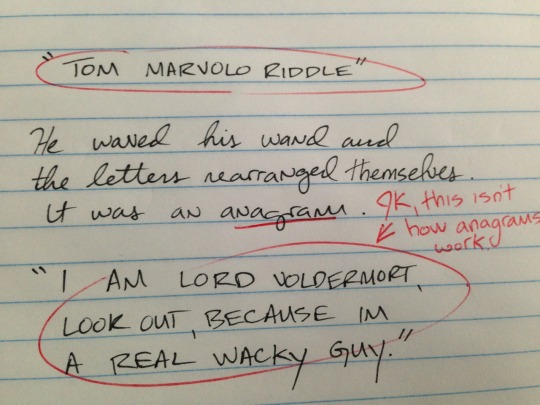 "TOM MARVOLO RIDDLE"
He waved his wand and
the letters rearranged themselves.
It was an anagram.
JK, this isn't
how anagrams
work.
"I AM LORD VOLDERMORT,
LOOK OUT, BECAUSE IM
A REAL WACKY GUY."